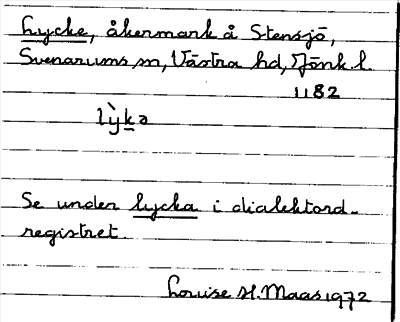 Lycke, åkermark å Stensjö,
Svenarums sn, Västra hd, Jönk. l.
1182
lỳk̲ə
Se under lycka i dialektord-
registret.
Louise H. Maas 1972